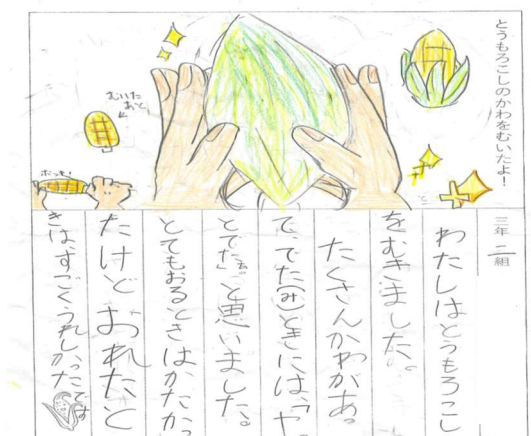 とうもろこしのかわをむいたよ！
むいた
あと
ポッキ
三年 二組
わたしはとうもろこし
をむきました。
たくさんかわがあ
て、でた(み)ときには、「ヤ
とでたぁ。」と思いました。
とてもおるときはかたかっ
たけど おれたと
きは、すごくうれしかったです